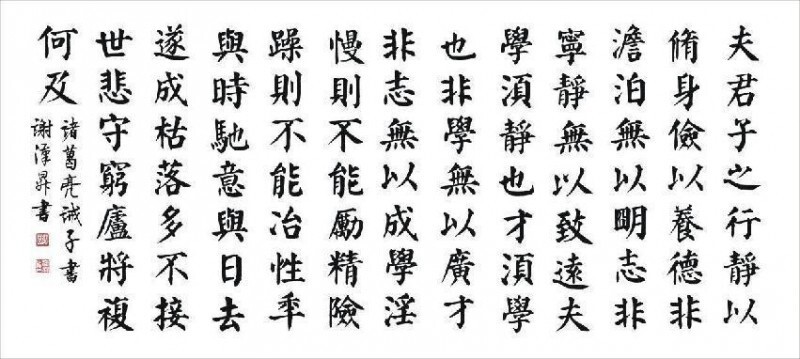 夫君子之行靜以
脩身儉以養德非
澹泊無以明志非
寧靜無以致遠夫
學須靜也才須學
也非學無以廣才
非志無以成學淫
慢則不能勵精險
躁則不能冶性年
與時馳意與日去
遂成枯落多不接
世悲守窮廬將複
何及
諸葛亮誡子書
謝澤昇書